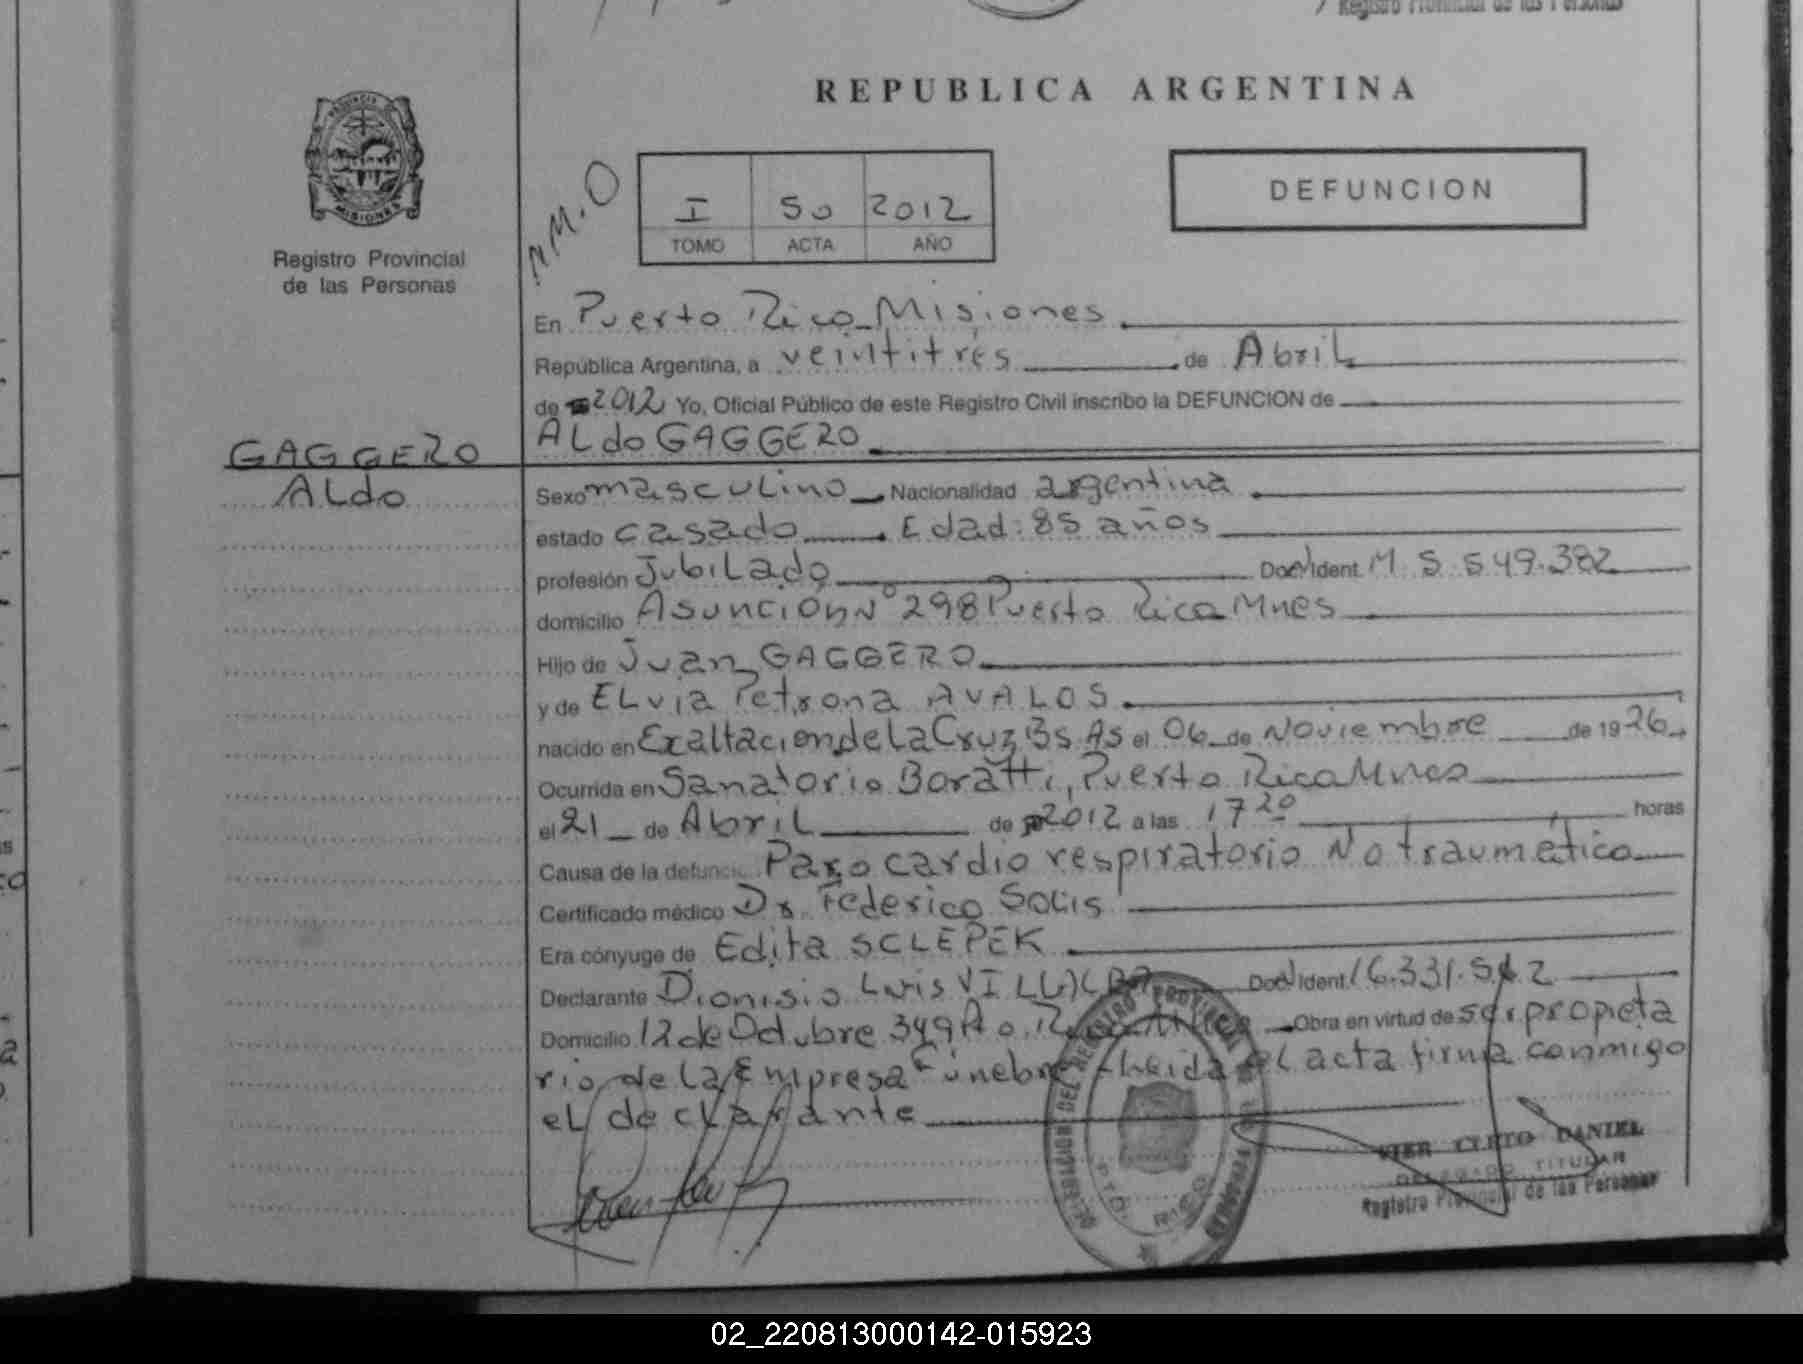 Registro Provincial de las Personas
REPUBLICA ARGENTINA
PROVINCIA DE
MISIONES
Registro Provincial
de las Personas
I 50 2012
TOMO ACTA AÑO
DEFUNCION
En Puerto Rico Misiones
República Argentina, a veintitrés de Abril
de 2012 Yo, Oficial Público de este Registro Civil inscribo la DEFUNCION de
ALdo GAGGERO
GAGGERO
ALdo
Sexo masculino Nacionalidad argentina
estado casado Edad: 85 años
profesión Jubilado Doc. Ident. M. 5.549.382
domicilio Asunción Nº 298 Puerto Rico Mnes
Hijo de Juan GAGGERO
y de ELvia Petrona AVALOS
nacido en Exaltacion de La Cruz Bs As el 06 de Noviembre de 1926
Ocurrida en Sanatorio Boratti, Puerto Rico Mnes
el 21 de Abril de 2012 a las 17 20 horas
Causa de la defunción Paro cardio respiratorio No traumático
Certificado médico Dr. Federico Solis
Era cónyuge de Edita SCLEPEK
Declarante Dionisio Luis VILLALBA Doc. Ident. 16.331.512
Domicilio 12 de Octubre 349 Obra en virtud de ser propieta
rio de La Empresa Fúnebre Leida el acta firma conmigo
el declarante
DELEGACION DEL REGISTRO PROVINCIAL DE LAS PERSONAS
PTO. RICO
CLETO DANIEL
DELEGADO TITULAR
Registro Provincial de las Personas
02_220813000142-015923